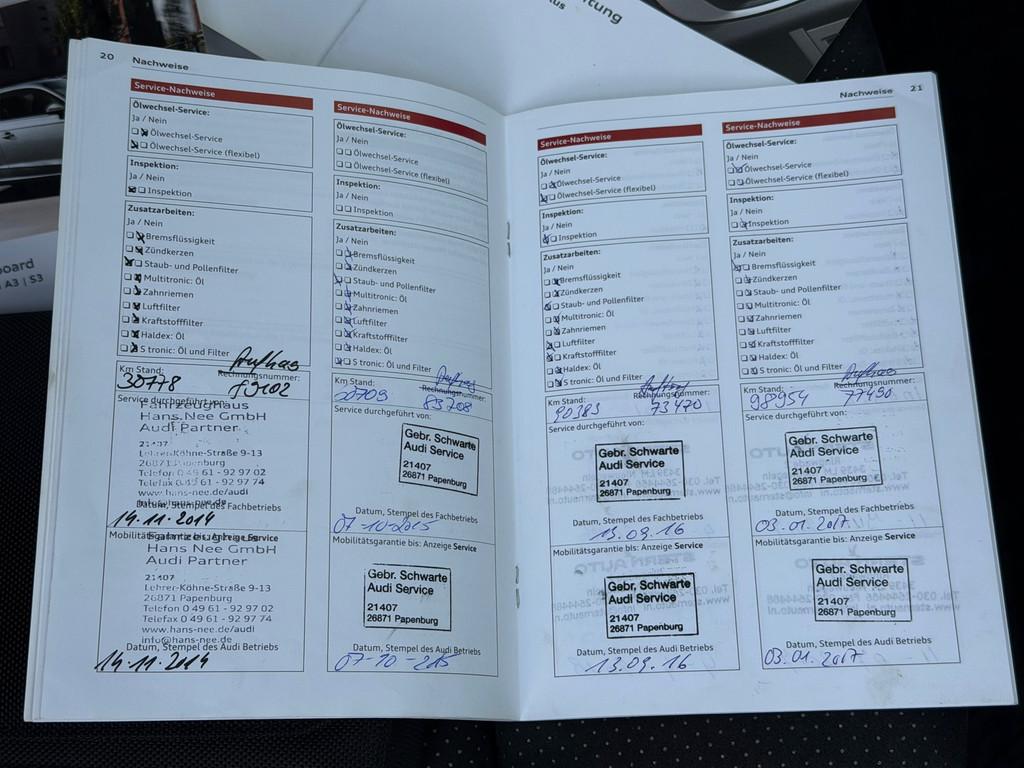 tung
us
oard
A3 | S3
20 Nachweise
Service-Nachweise
Ölwechsel-Service:
Ja / Nein
Ölwechsel-Service
Ölwechsel-Service (flexibel)
Inspektion:
Ja / Nein
Inspektion
Zusatzarbeiten:
Ja / Nein
Bremsflüssigkeit
Zündkerzen
Staub- und Pollenfilter
Multitronic: Öl
Zahnriemen
Luftfilter
Kraftstofffilter
Haldex: Öl
S tronic: Öl und Filter
Km Stand: Rechnungsnummer:
30778
Service durchgeführt von:
Fahrzeughaus
Hans Nee GmbH
Audi Partner
21407
Lehrer-Köhne-Straße 9-13
26871 Papenburg
Telefon 0 49 61 - 92 97 02
Telefax 0 49 61 - 92 97 74
www.hans-nee.de/audi
Datum, Stempel des Fachbetriebs
14.11.2014
Mobilitätsgarantie bis: Anzeige Service
Hans Nee GmbH
Audi Partner
21407
Lehrer-Köhne-Straße 9-13
26871 Papenburg
Telefon 0 49 61 - 92 97 02
Telefax 0 49 61 - 92 97 74
www.hans-nee.de/audi
info@hans-nee.de
Datum, Stempel des Audi Betriebs
14.11.2014
Service-Nachweise
Ölwechsel-Service:
Ja / Nein
Ölwechsel-Service
Ölwechsel-Service (flexibel)
Inspektion:
Ja / Nein
Inspektion
Zusatzarbeiten:
Ja / Nein
Bremsflüssigkeit
Zündkerzen
Staub- und Pollenfilter
Multitronic: Öl
Zahnriemen
Luftfilter
Kraftstofffilter
Haldex: Öl
S tronic: Öl und Filter
Km Stand: Rechnungsnummer:
83208
Service durchgeführt von:
Gebr. Schwarte
Audi Service
21407
26871 Papenburg
Datum, Stempel des Fachbetriebs
07-10-2015
Mobilitätsgarantie bis: Anzeige Service
Gebr. Schwarte
Audi Service
21407
26871 Papenburg
Datum, Stempel des Audi Betriebs
07-10-215
Nachweise 21
Service-Nachweise
Ölwechsel-Service:
Ja / Nein
Ölwechsel-Service
Ölwechsel-Service (flexibel)
Inspektion:
Ja / Nein
Inspektion
Zusatzarbeiten:
Ja / Nein
Bremsflüssigkeit
Zündkerzen
Staub- und Pollenfilter
Multitronic: Öl
Zahnriemen
Luftfilter
Kraftstofffilter
Haldex: Öl
S tronic: Öl und Filter
Km Stand: Rechnungsnummer:
90383 73470
Service durchgeführt von:
Gebr. Schwarte
Audi Service
21407
26871 Papenburg
Datum, Stempel des Fachbetriebs
13.09.16
Mobilitätsgarantie bis: Anzeige Service
Gebr. Schwarte
Audi Service
21407
26871 Papenburg
Datum, Stempel des Audi Betriebs
13.09.16
Service-Nachweise
Ölwechsel-Service:
Ja / Nein
Ölwechsel-Service
Ölwechsel-Service (flexibel)
Inspektion:
Ja / Nein
Inspektion
Zusatzarbeiten:
Ja / Nein
Bremsflüssigkeit
Zündkerzen
Staub- und Pollenfilter
Multitronic: Öl
Zahnriemen
Luftfilter
Kraftstofffilter
Haldex: Öl
S tronic: Öl und Filter
Km Stand: Rechnungsnummer:
98954 77490
Service durchgeführt von:
Gebr. Schwarte
Audi Service
21407
26871 Papenburg
Datum, Stempel des Fachbetriebs
03.01.2017
Mobilitätsgarantie bis: Anzeige Service
Gebr. Schwarte
Audi Service
21407
26871 Papenburg
Datum, Stempel des Audi Betriebs
03.01.2017